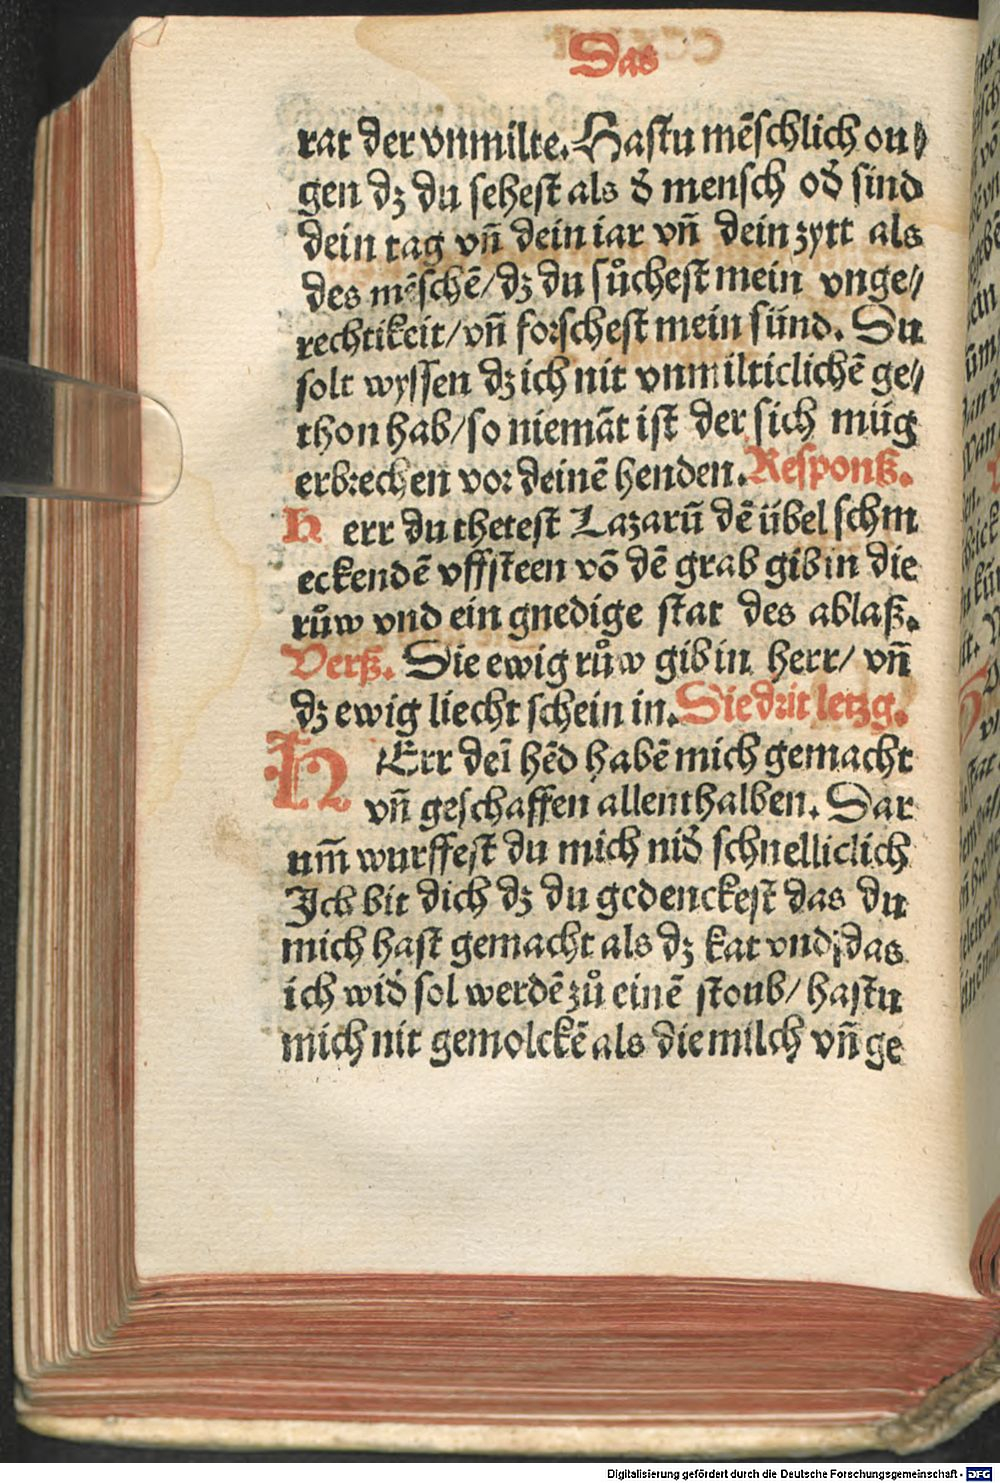 Das
rat der vnmilte. Hastu mēschlich ou⸗
gen dz du sehest als đ mensch ođ sind
dein tag vn̄ dein iar vn̄ dein zytt als
des mēschē/ dz du sůchest mein vnge⸗
rechtikeit/ vn̄ forschest mein sünd. Du
solt wyssen dz ich nit vnmilticlichē ge⸗
thon hab/ so niemāt ist der sich müg
erbrechen vor deinē henden. Responß.
Herr du thetest Lazarū dē übel schm
eckendē vffsteen vō dē grab gib in die
růw vnd ein gnedige stat des ablaß.
Verß. Die ewig růw gib in herr/ vn̄
dz ewig liecht schein in. Die drit letzg.
HErr deī hēd habē mich gemacht
vn̄ geschaffen allenthalben. Dar
um̄ wurffest du mich niđ schnelliclich
Ich bit dich dz du gedenckest das du
mich hast gemacht als dz kat vnd das
ich wiđ sol werdē zů einē stoub/ hastu
mich nit gemolckē als die milch vn̄ ge
Digitalisierung gefördert durch die Deutsche Forschungsgemeinschaft - DFG